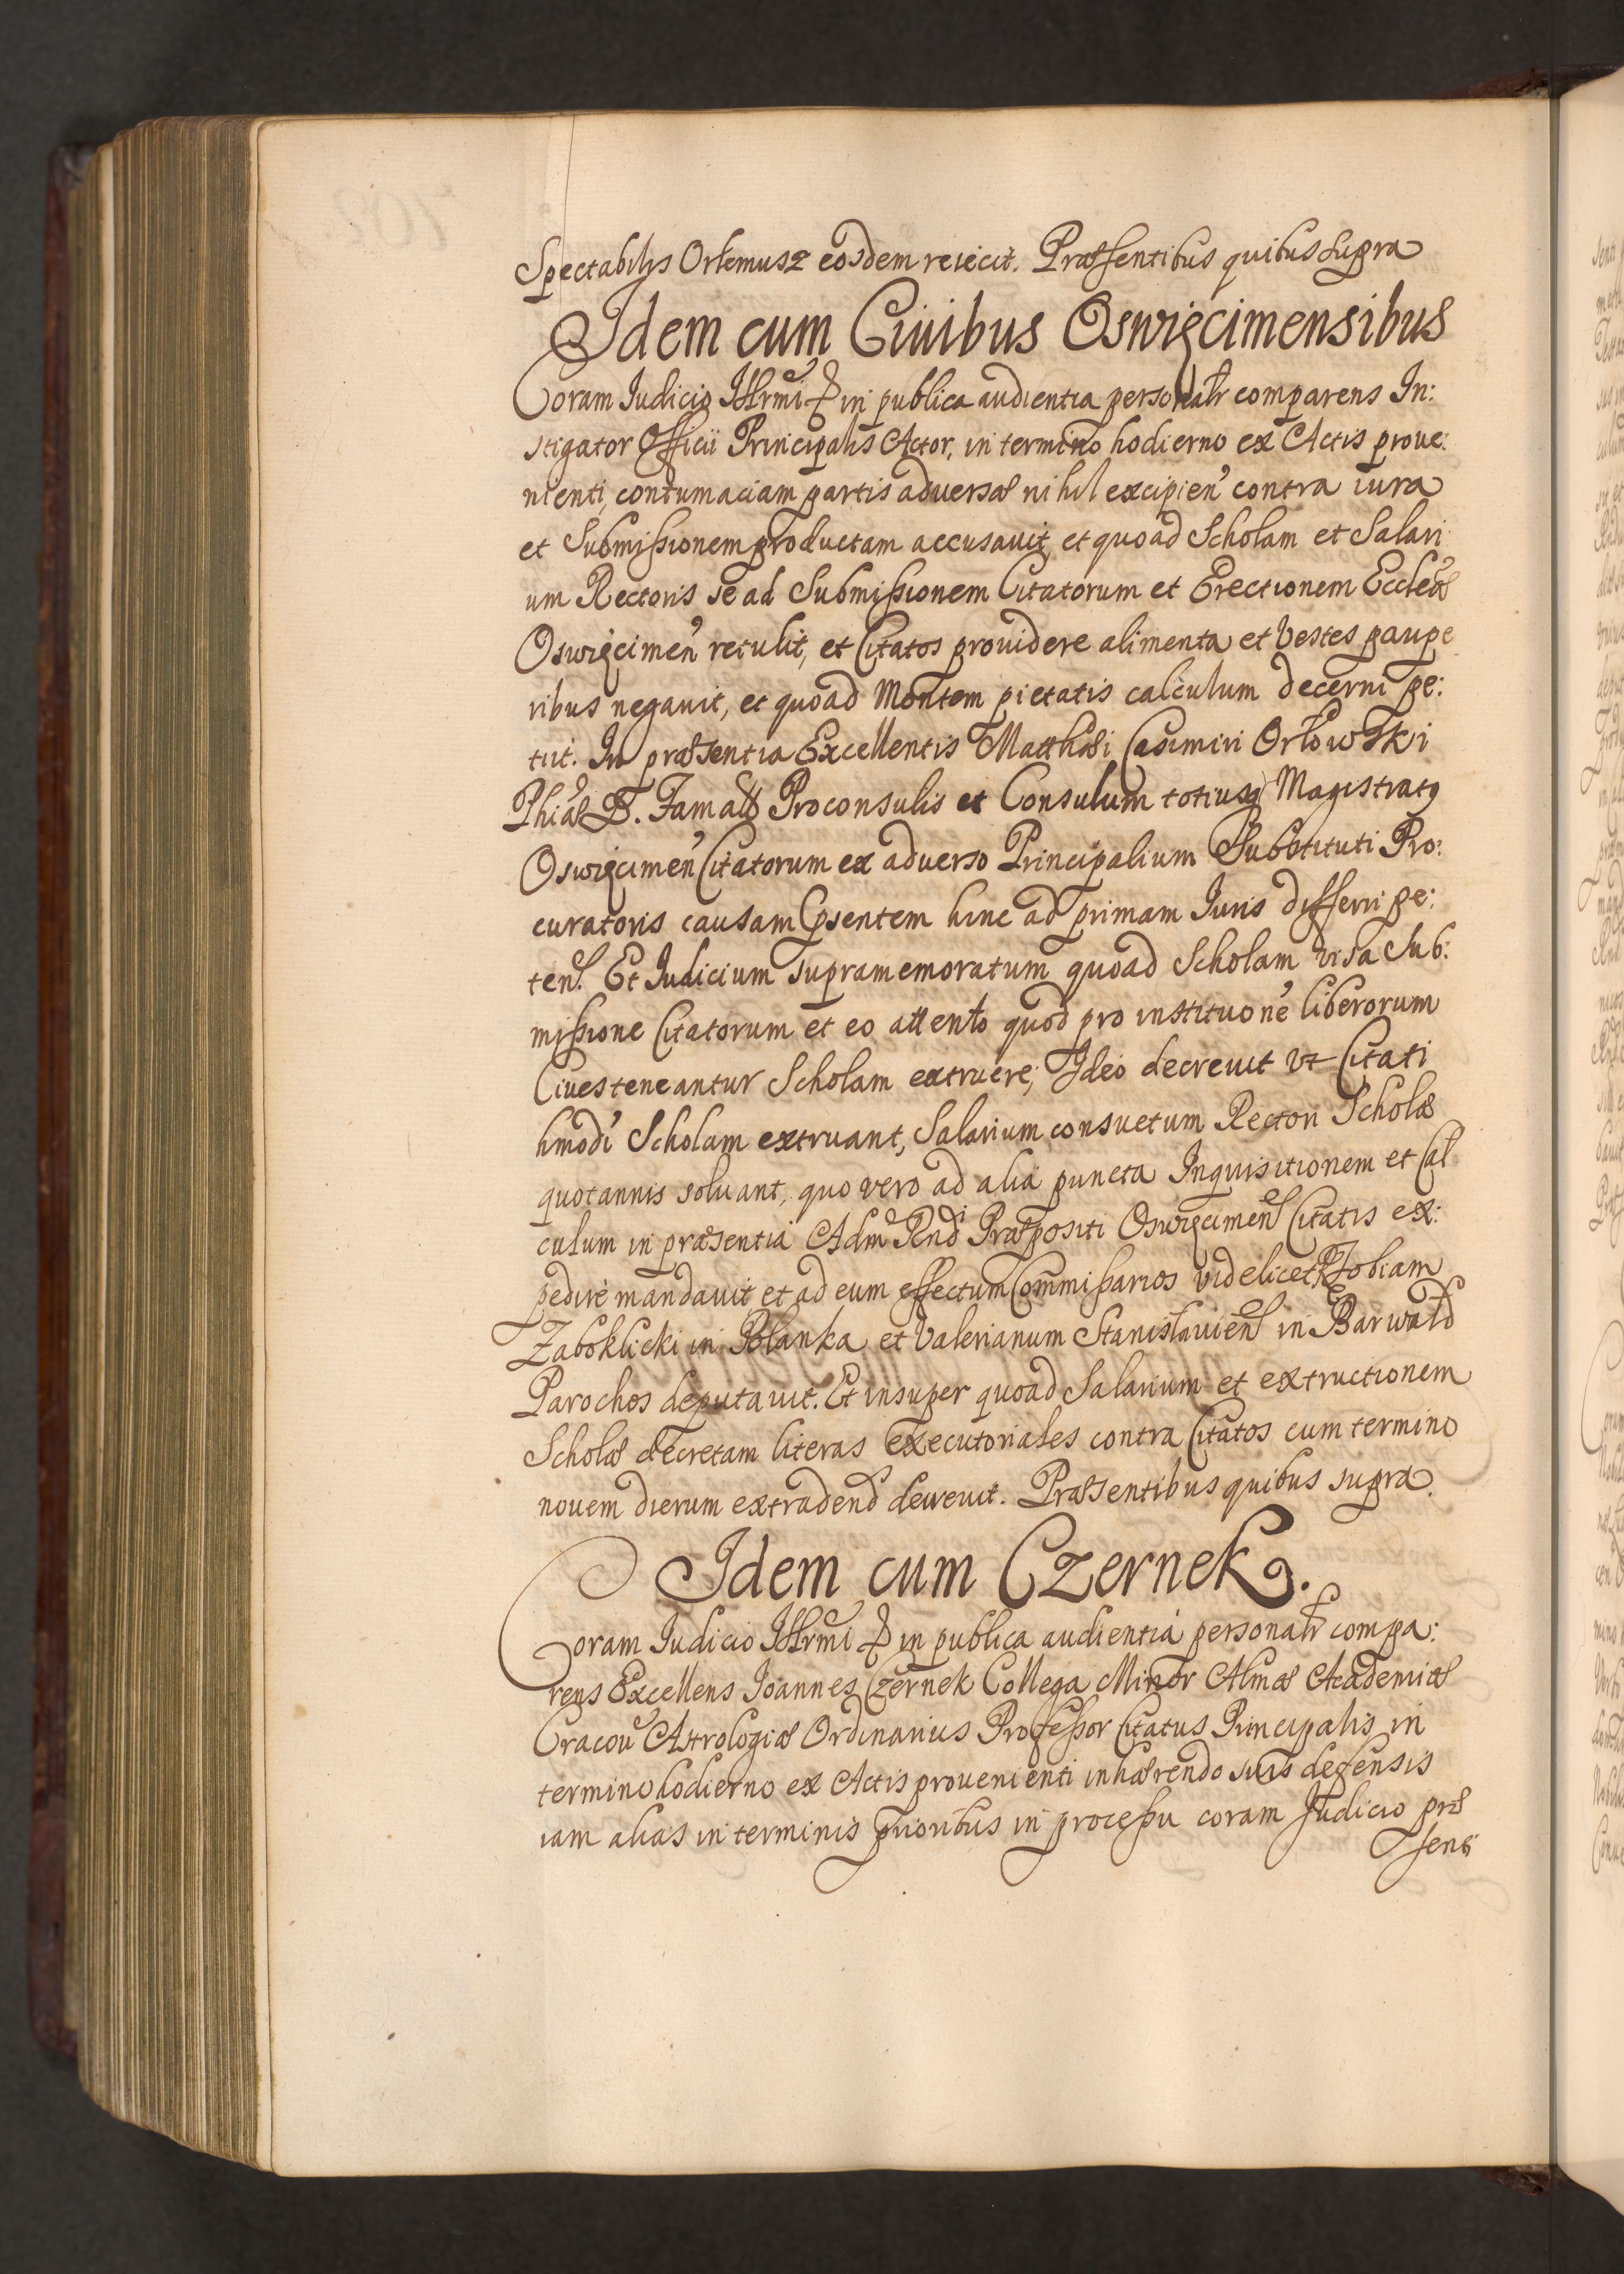 Spectabilis Ortemusz eosdem reiecit. Præsentibus quibus supra
Idem cum Ciuibus Oswięcimensibus
Coram Iudicio Illrmi &c in publica audientia personalr comparens In:
stigator Officii Principalis Actor, in termino hodierno ex Actis proue:
nienti, contumaciam partis aduersæ nihil excipien contra iura
et Submissionem productam accusauit, et quoad Scholam et Salari
um Rectoris se ad Submissionem Citatorum et Erectionem Eccleæ
Oswięcimen retulit, et Citatos prouidere alimenta et Vestes paupe
ribus negauit, et quoad Montem pietatis calculum decerni pe:
tiit. In præsentia Excellentis Matthæi Casimiri Orłowski
Phiæ D. Famatt Proconsulis et Consulum totiusq Magistratq
Oswięcimen Citatorum ex aduerso Principalium Substituti Pro:
curatoris causam psentem hinc ad primam Iuris differri pe:
ten. Et Iudicium supramemoratum quoad Scholam visa Sub:
missione Citatorum et eo attento quod pro instituone liberorum
Ciues teneantur Scholam extruere, Ideo decreuit vt Citati
hmodi Scholam extruant, Salarium consuetum Rectori Scholæ
quotannis soluant, quo vero ad alia puncta Inquisitionem et Cal
culum in præsentia Adm Rndi Præpositi Oswięcimen Citatis ex:
pedire mandauit et ad eum effectum Commissarios videlicet Tobiam
Zaboklicki in Polanka et Valerianum Stanislauien in Barwałd
Parochos deputauit. Et insuper quoad Salarium et extructionem
Scholæ decretam literas executoriales contra Citatos cum termino
nouem dierum extradend decreuit. Præsentibus quibus supra.
Idem cum Czernek.
Coram Iudicio Illrmi &c in publica audientia personalr compa:
rens Excellens Ioannes Czernek Collega Minor Almæ Academiæ
Cracou Astrologiæ Ordinarius Professor Citatus Principalis in
termino hodierno ex Actis prouenienti inhærendo suis defensis
iam alias in terminis prioribus in processu coram Iudicio præ
senti